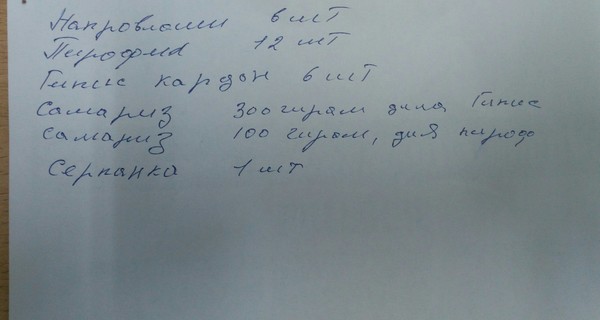 Напровляши 6 шт
Пирофил 12 шт
Гипис кардон 6 шт
Самариз 300 гирам дила Гипис
Самариз 100 гирам, для пирофо
Серпанка 1 шт